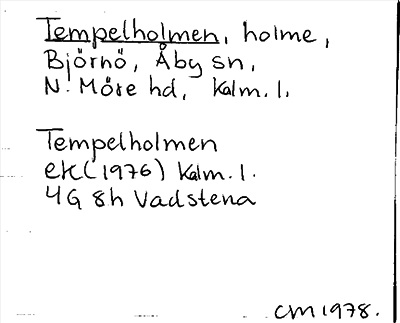 Tempelholmen, holme,
Björnö, Åby sn,
N. Möre hd, Kalm. l.
Tempelholmen
ek (1976) Kalm. l.
4G 8h Vadstena
CM 1978.